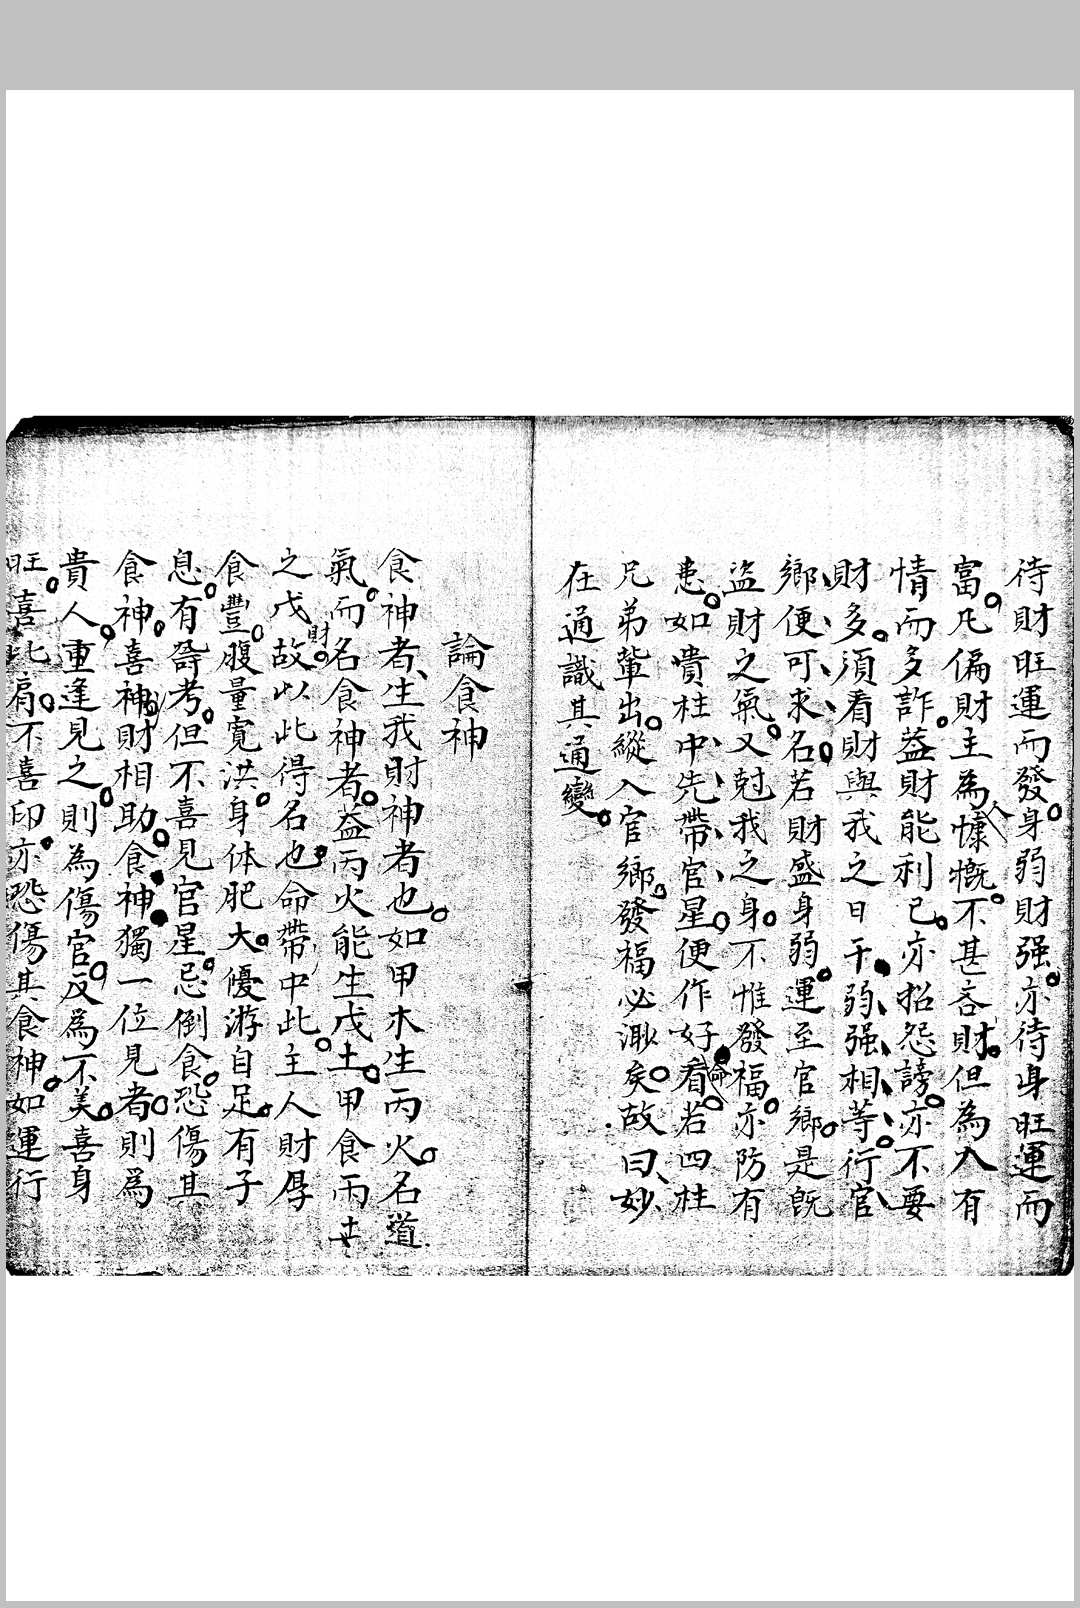 待財旺運而發身弱財强亦待身旺運而
富凡偏財主為人慷慨不甚吝財但為人有
情而多詐益財能利己亦招怨謗亦不要
財多須看財與我之日干弱强相等行官
鄉便可求名若財盛身弱運至官鄉是旣
盜財之氣又尅我之身不惟發福亦防有
患如貴柱中先帶官星便作好命看若四柱
兄弟輩出縱入官鄉發福必渺矣故曰妙
在通識其通變
論食神
食神者生我財神者也如甲木生丙火名道
氣而名食神者益丙火能生戊土甲食丙
之戊財故以此得名也命帶中此主人財厚
食豐腹量寬洪身体肥大優游自足有子
息有壽考但不喜見官星忌倒食恐傷其
食神喜神財相助食神獨一位見者則爲
貴人重逢見之則為傷官反為不美喜身
旺喜比肩不喜印亦恐傷其食神如運行